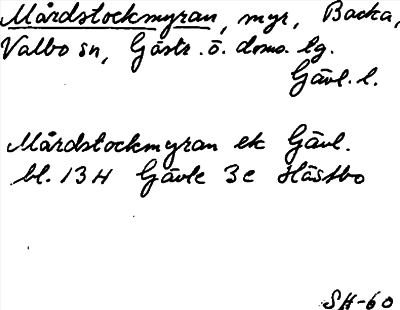 Mårdstockmyran, myr, Backa,
Valbo sn, Gästr. ö. doms. tg.
Gävl. l.
Mårdstockmyran ek Gävl.
bl. 13H Gävle 3c Hästbo
SH-60